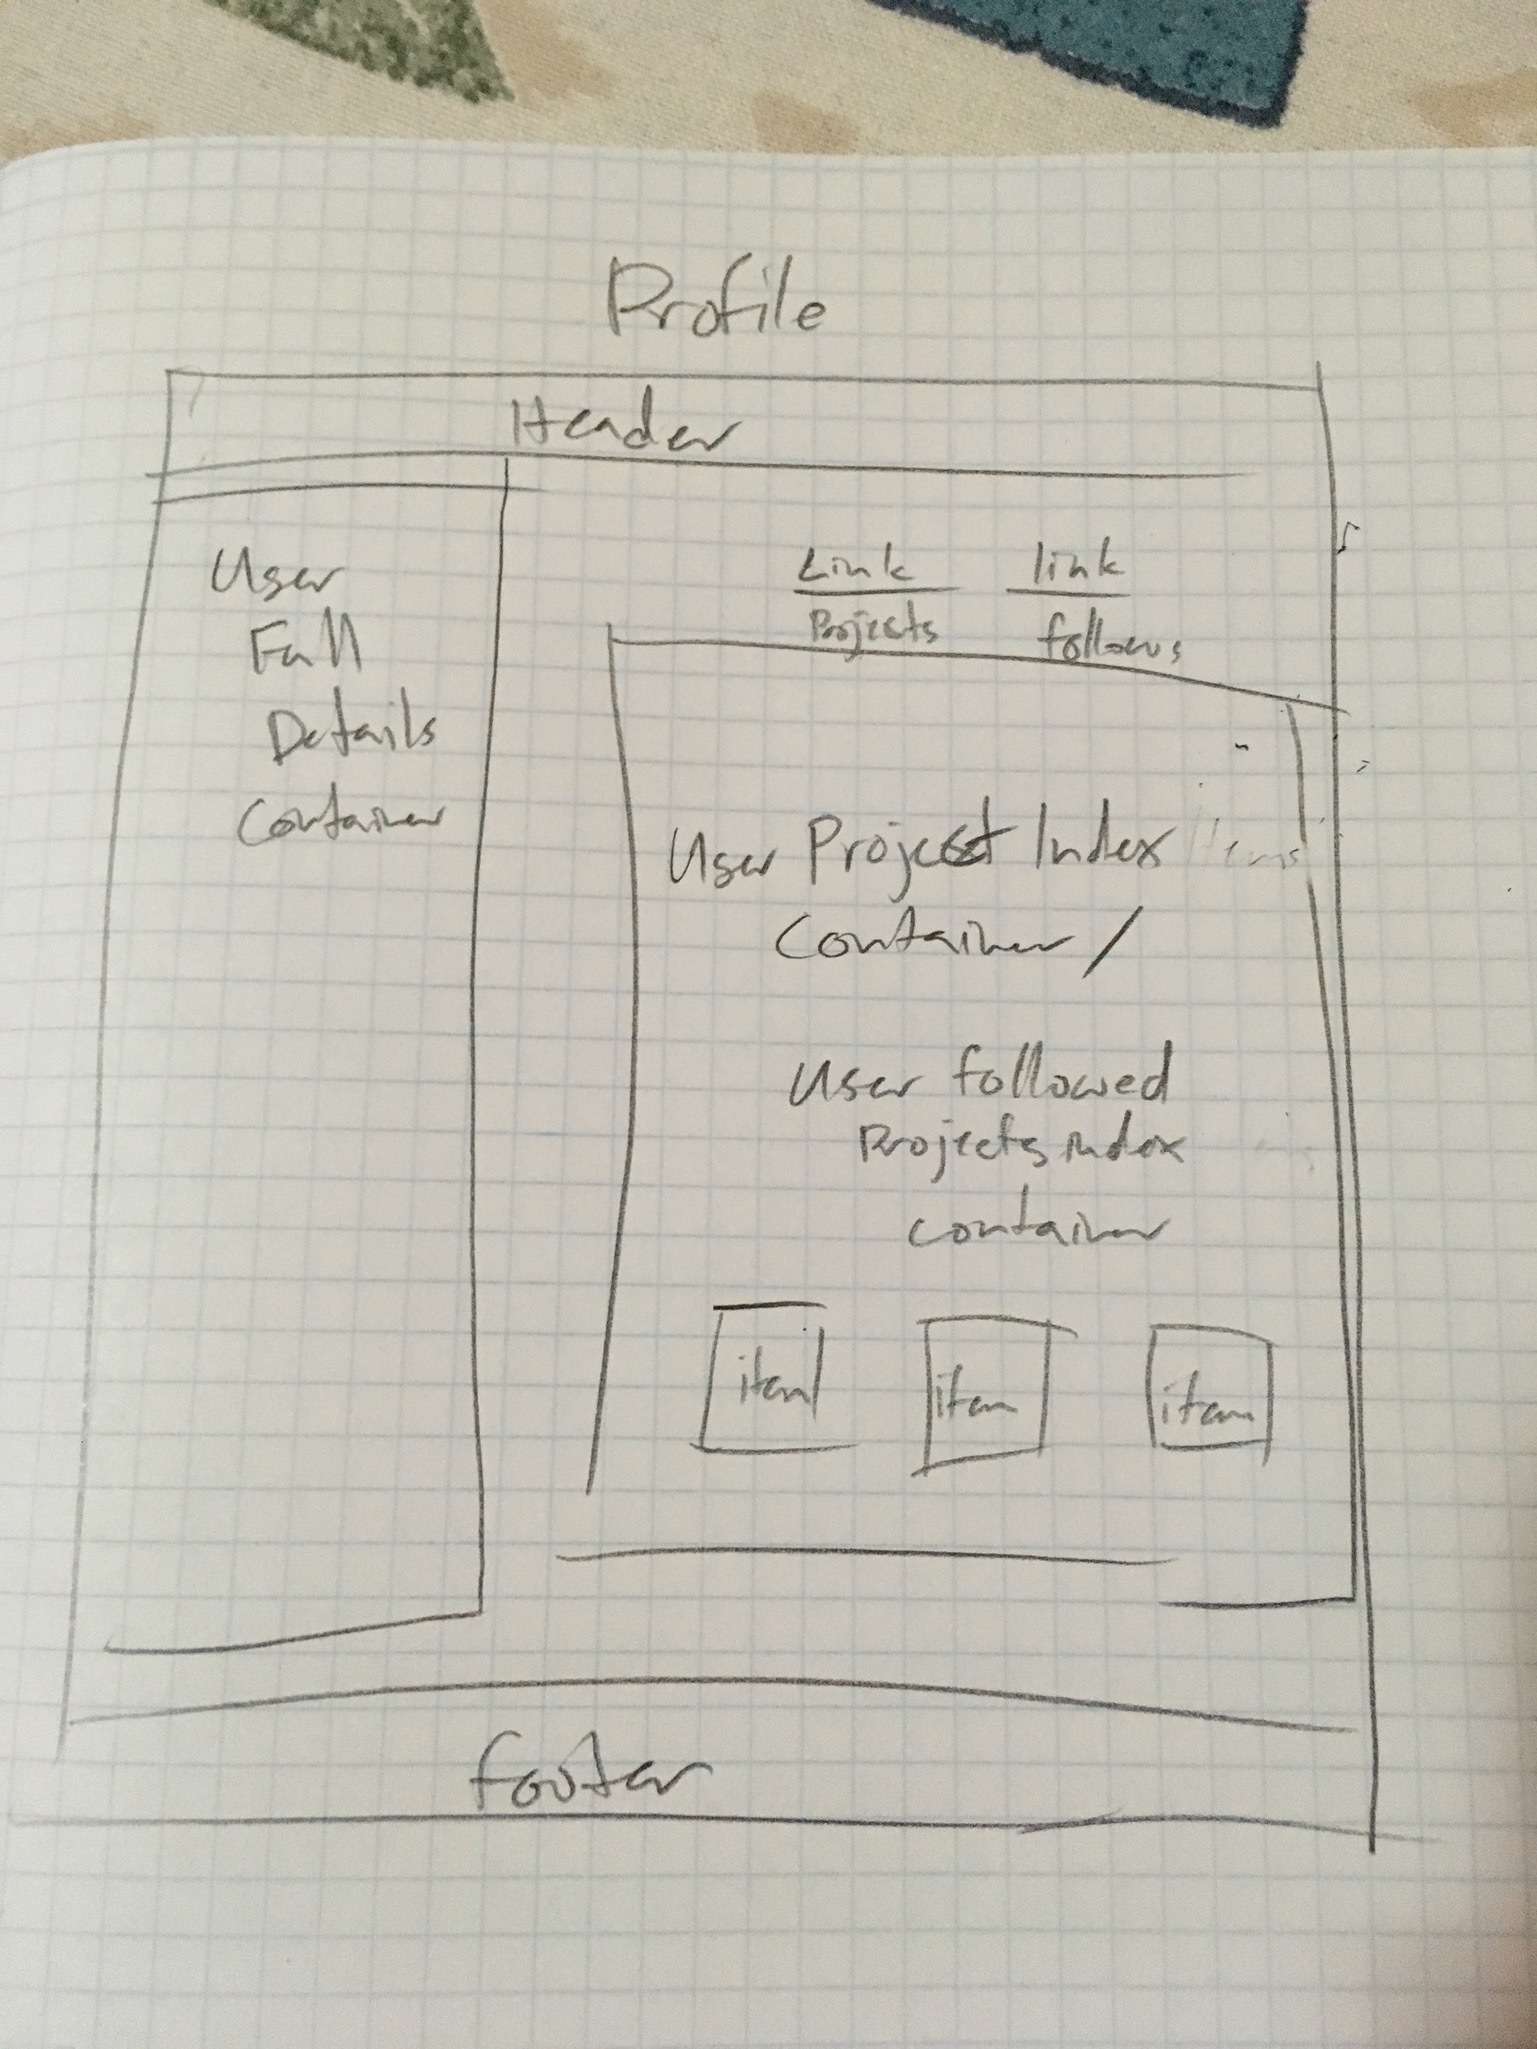 Profile
Header
User
Full
Details
Container
Link link
Projects follows
User Project Index
Container /
User followed
Projects index
container
item item item
footer